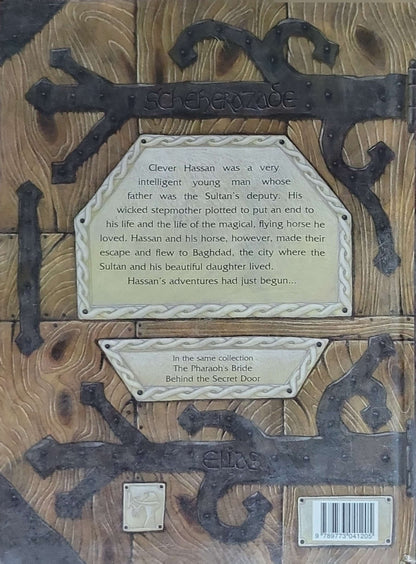 Scheherazade
Clever Hassan was a very
intelligent young man whose
father was the Sultan's deputy. His
wicked stepmother plotted to put an end to
his life and the life of the magical, flying horse he
loved. Hassan and his horse, however, made their
escape and flew to Baghdad, the city where the
Sultan and his beautiful daughter lived.
Hassan's adventures had just begun...
In the same collection
The Pharaoh's Bride
Behind the Secret Door
Elias
9 789773 041205